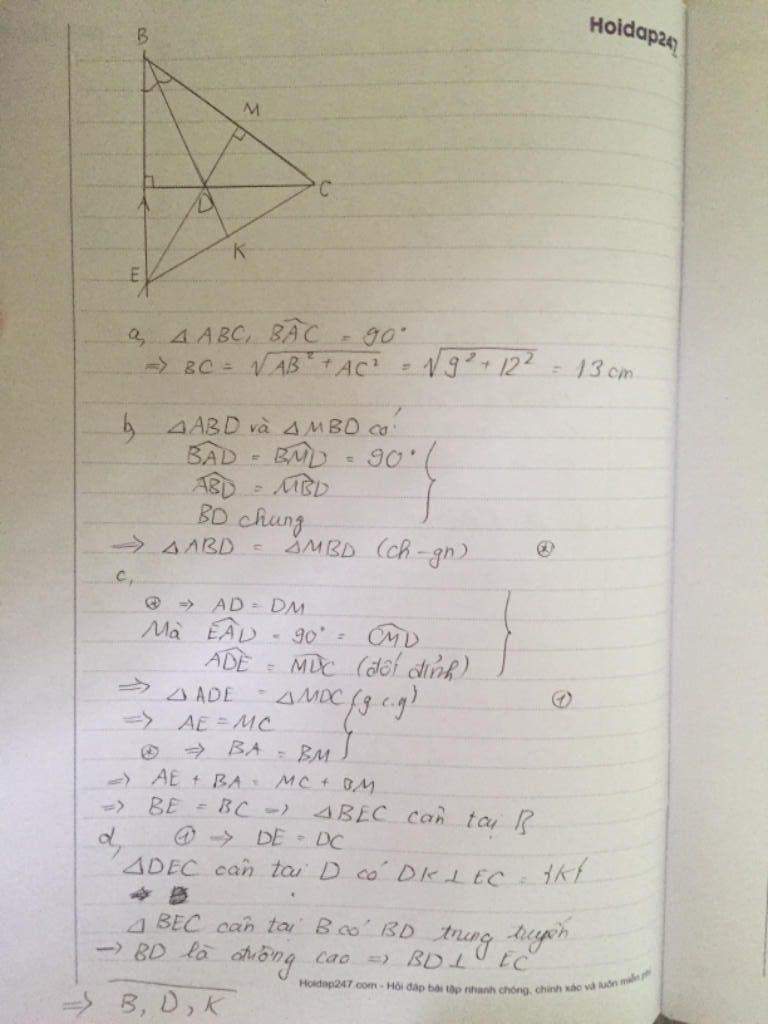 Hoidap247
B
M
A
D
C
K
E
a, △ ABC, BAC = 90°
=> BC = √AB² + AC² = √9² + 12² = 13 cm
b, △ABD và △MBD có
BAD = BMD = 90°
ABD = MBD
BD chung
=> △ABD = △MBD (ch-gn) ⊛
c,
⊛ => AD = DM
Mà EAD = 90° = CMD
ADE = MDC (đối đỉnh)
=> △ADE = △MDC (g.c.g) ①
=> AE = MC
⊛ => BA = BM
=> AE + BA = MC + BM
=> BE = BC => △BEC cân tại B
d, ① => DE = DC
△DEC cân tại D có DK ⊥ EC = {K}
△BEC cân tại B có BD trung tuyến
-> BD là đường cao => BD ⊥ EC
Hoidap247.com - Hỏi đáp bài tập nhanh chóng, chính xác và luôn miễn phí
=> B, D, K